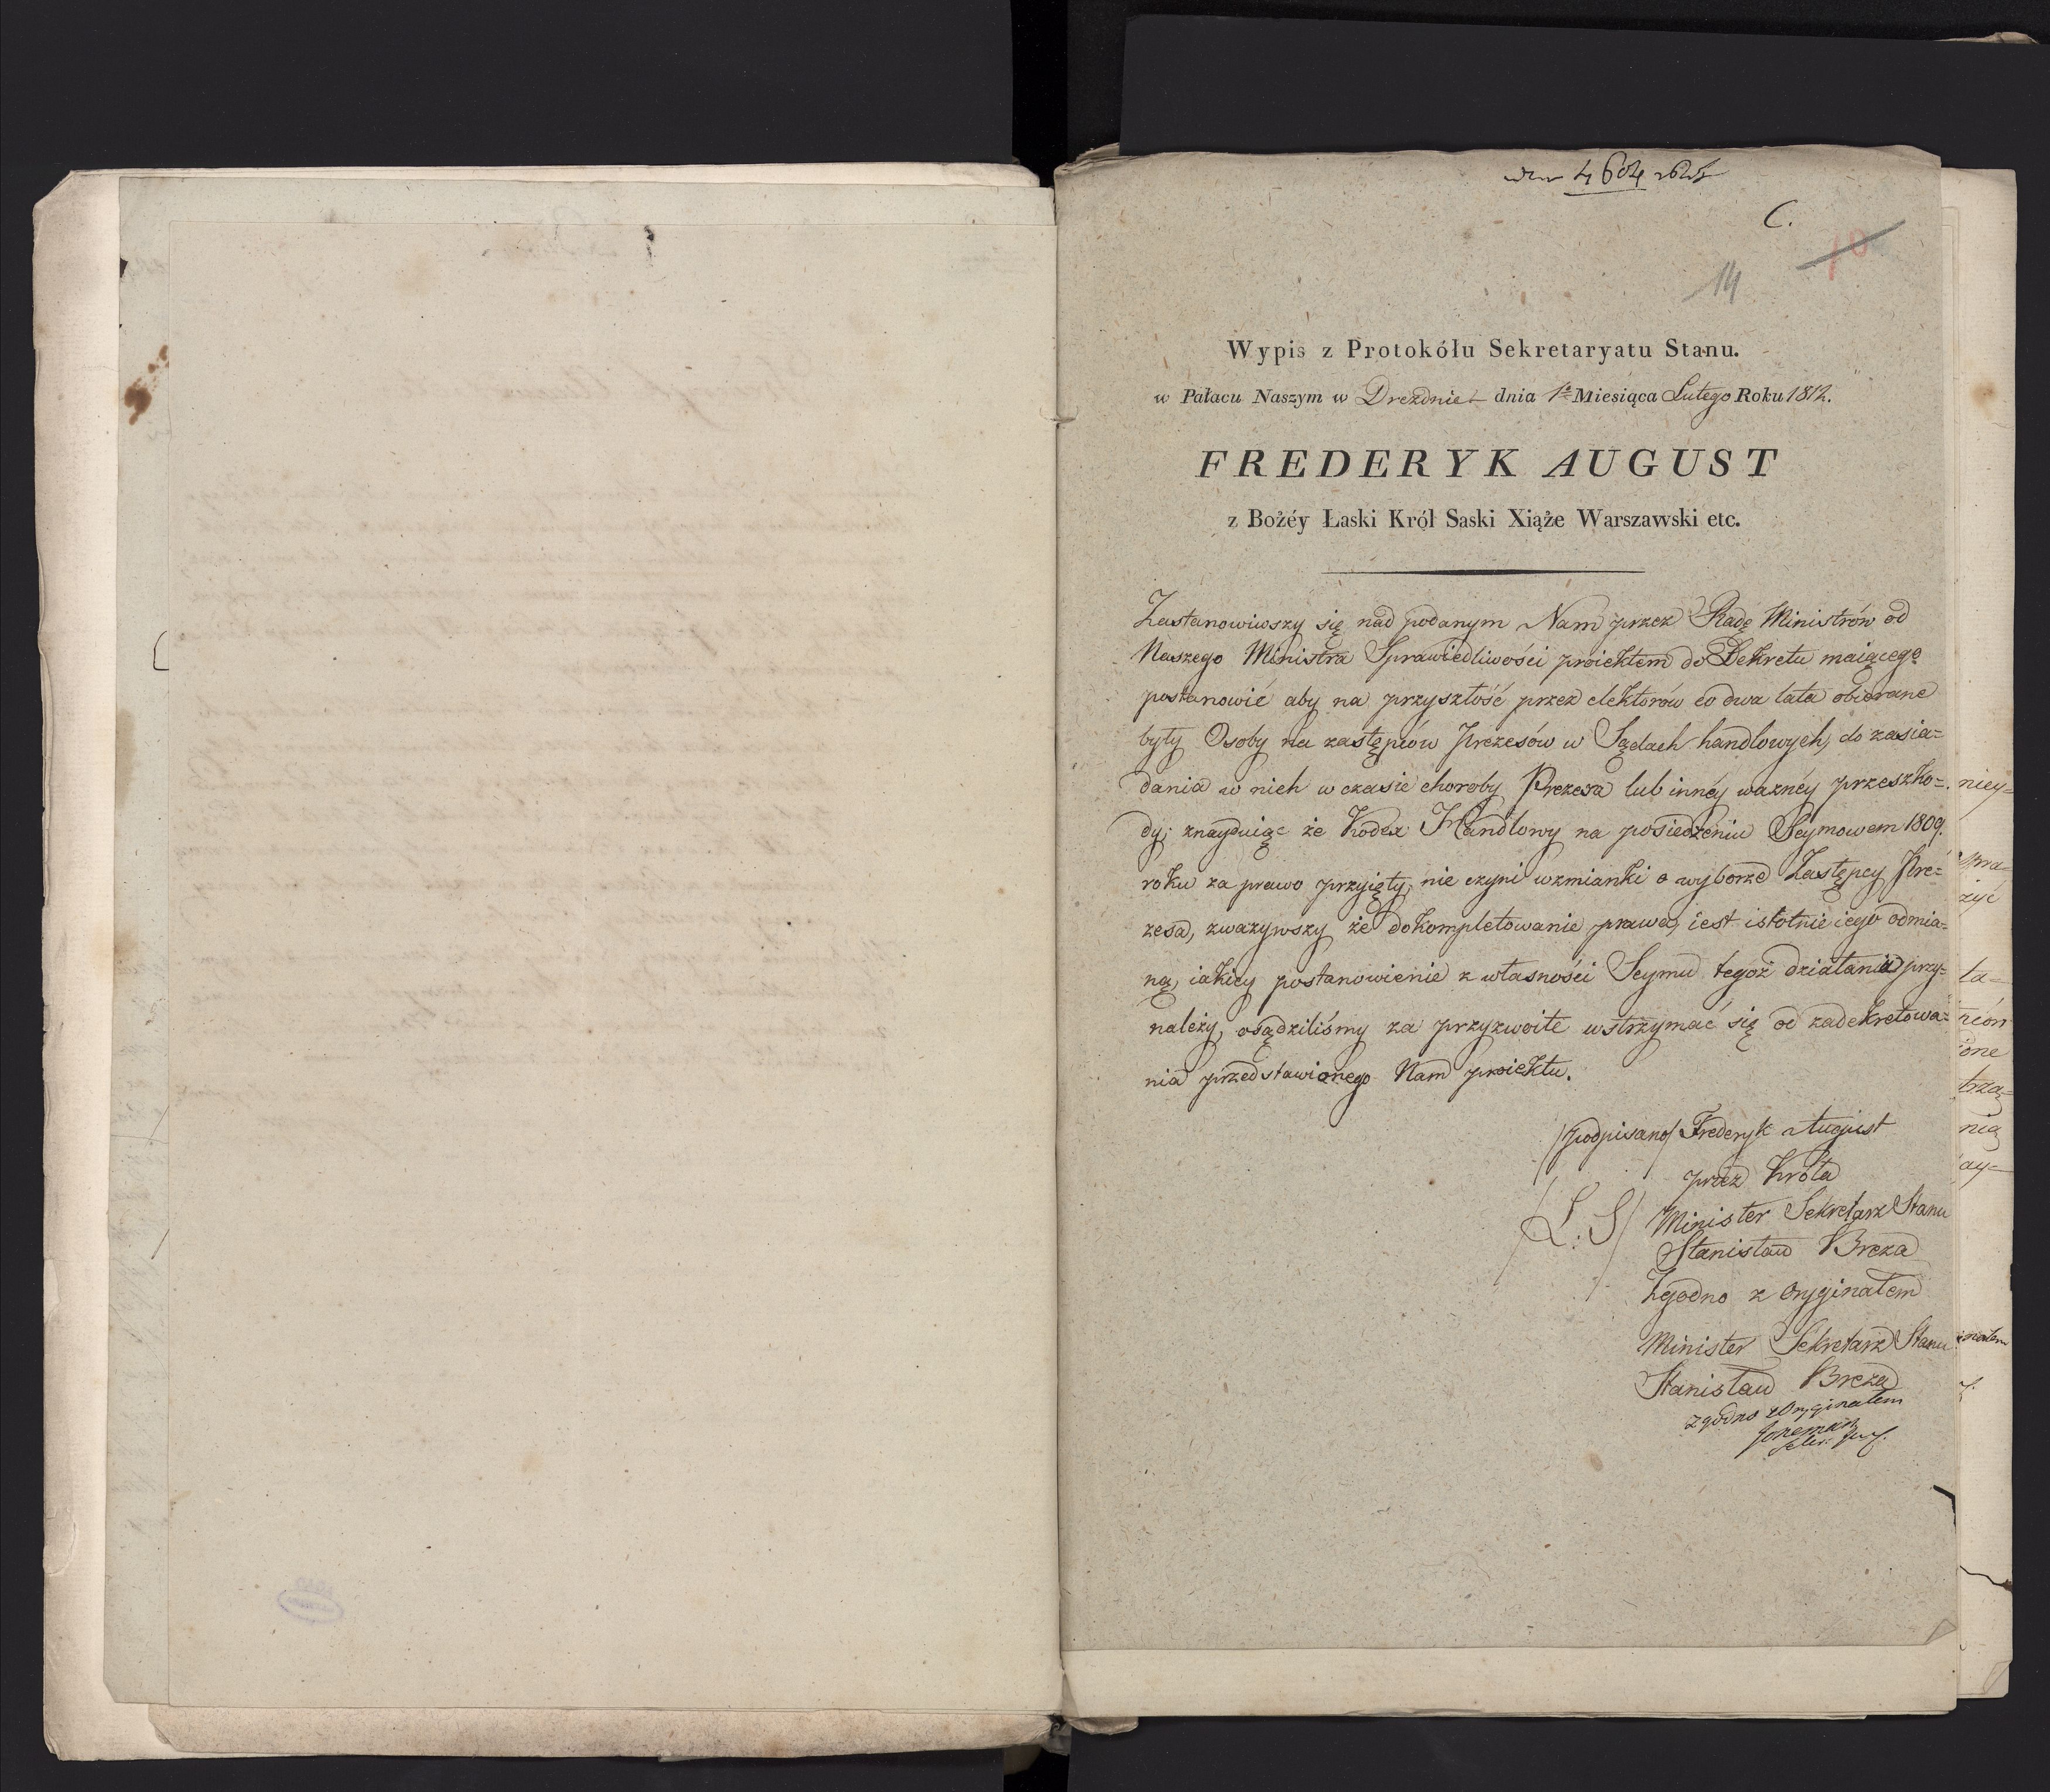 4604
C.
10
14
Wypis z Protokółu Sekretaryatu Stanu.
w Pałacu Naszym w Dreznie dnia 1o Miesiąca Lutego Roku 1812.
FREDERYK AUGUST
z Bożéy Łaski Król Saski Xiąże Warszawski etc.
Zastanowiwszy się nad podanym Nam przez Radę Ministrów od
Naszego Ministra Sprawiedliwości proiektem do Dekretu maiącego
postanowić aby na przyszłość przez elektorów co dwa lata obierane
były Osoby na zastępców Prezesów w Sądach handlowych, do zasia=
dania w nich w czasie choroby Prezesa lub innéy ważnéy przeszko=
dy; znayduiąc że Kodex Handlowy na posiedzeniu Seymowem 1809.
roku za prawo przyięty, nie czyni wzmianki o wyborze Zastępcy Pre=
zesa, zważywszy że dokompletowanie prawa, iest istotnie iego odmia=
ną, iakiey postanowienie z własności Seymu tegoż działania przy=
należy, osądziliśmy za przyzwoite wstrzymać się od zadekretowa=
nia przedstawionego Nam proiektu.
/podpisano/ Frederyk August
przez Króla
/L. S/ Minister Sekretarz Stanu
Stanisław Breza
Zgodno z Oryginałem
Minister Sekretarz Stanu
Stanisław Breza
zgodno z Oryginałem
niey=
żyć
ta=
ione
trzą=
nią
ay=